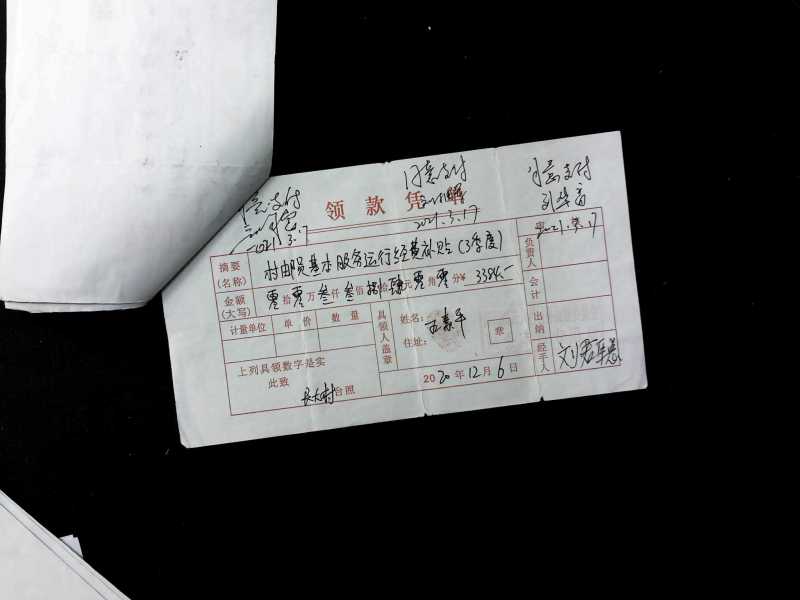 同意支付
同意支付
同意支付
2021.3.17
2021.3.17
领款凭
摘要
(名称)
村由员基本服务运行经费补贴(3季度)
负责人
金额
(大写)
零拾零万叁仟叁佰捌拾肆元零角零分¥ 3384.-
会计
计量单位 单价 数量
具领人盖章
姓名:
住址:
章
出纳
上列具领数字是实
此致
台照
2020年12月6日
经手人